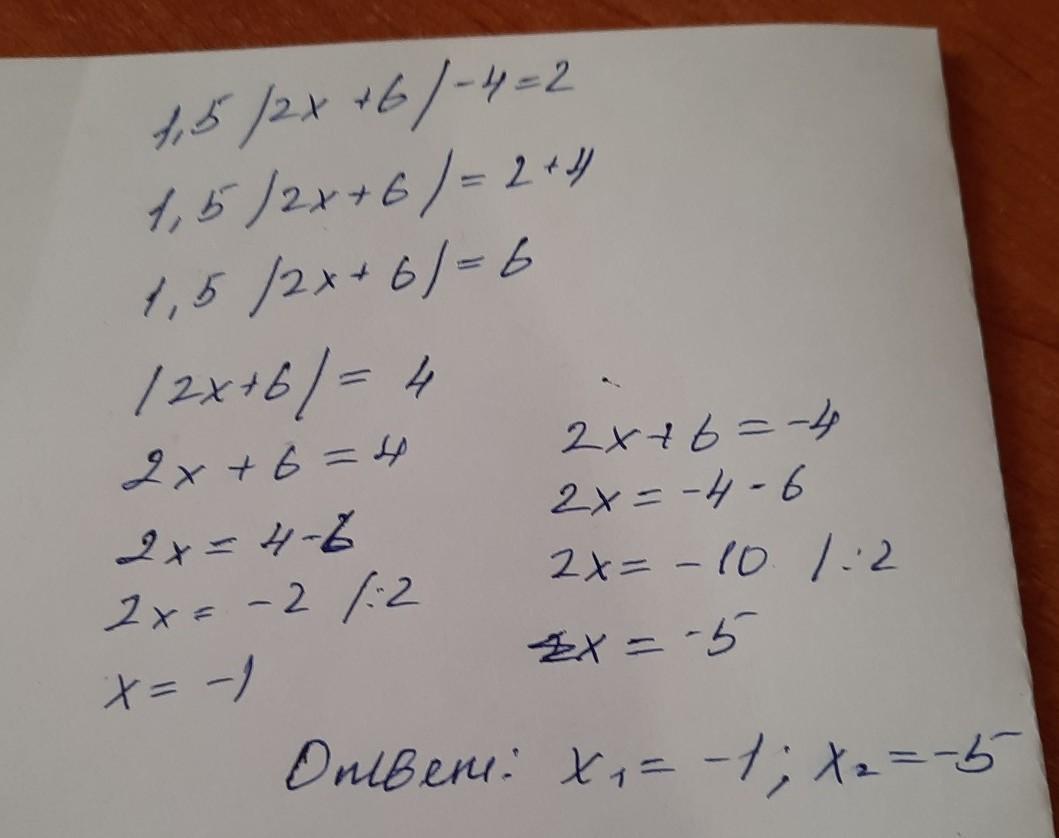 1,5 |2x + 6| - 4 = 2
1,5 |2x + 6| = 2 + 4
1,5 |2x + 6| = 6
|2x + 6| = 4
2x + 6 = 4
2x = 4 - 6
2x = -2 |:2
x = -1
2x + 6 = -4
2x = -4 - 6
2x = -10 |:2
x = -5
Ответ: x₁ = -1; x₂ = -5